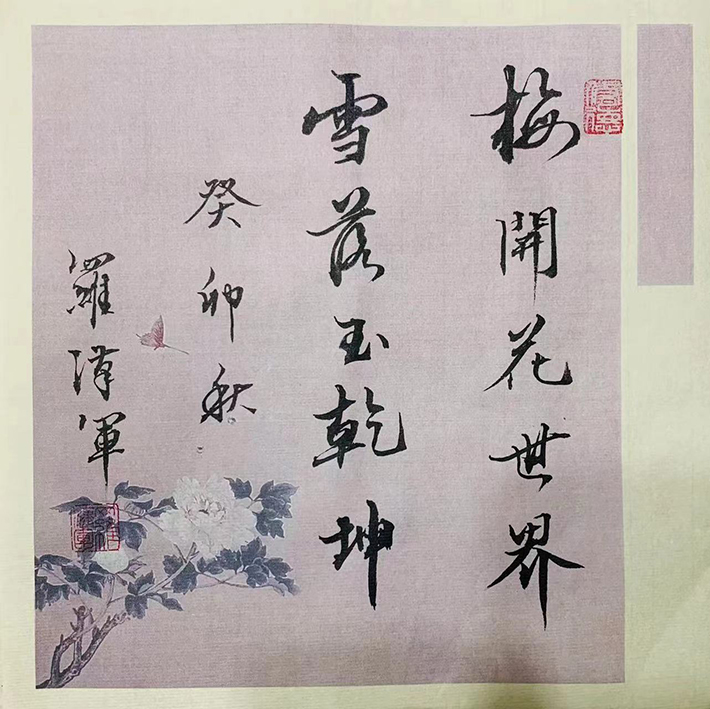 梅開花世界
雪落玉乾坤
癸卯秋
羅漢軍